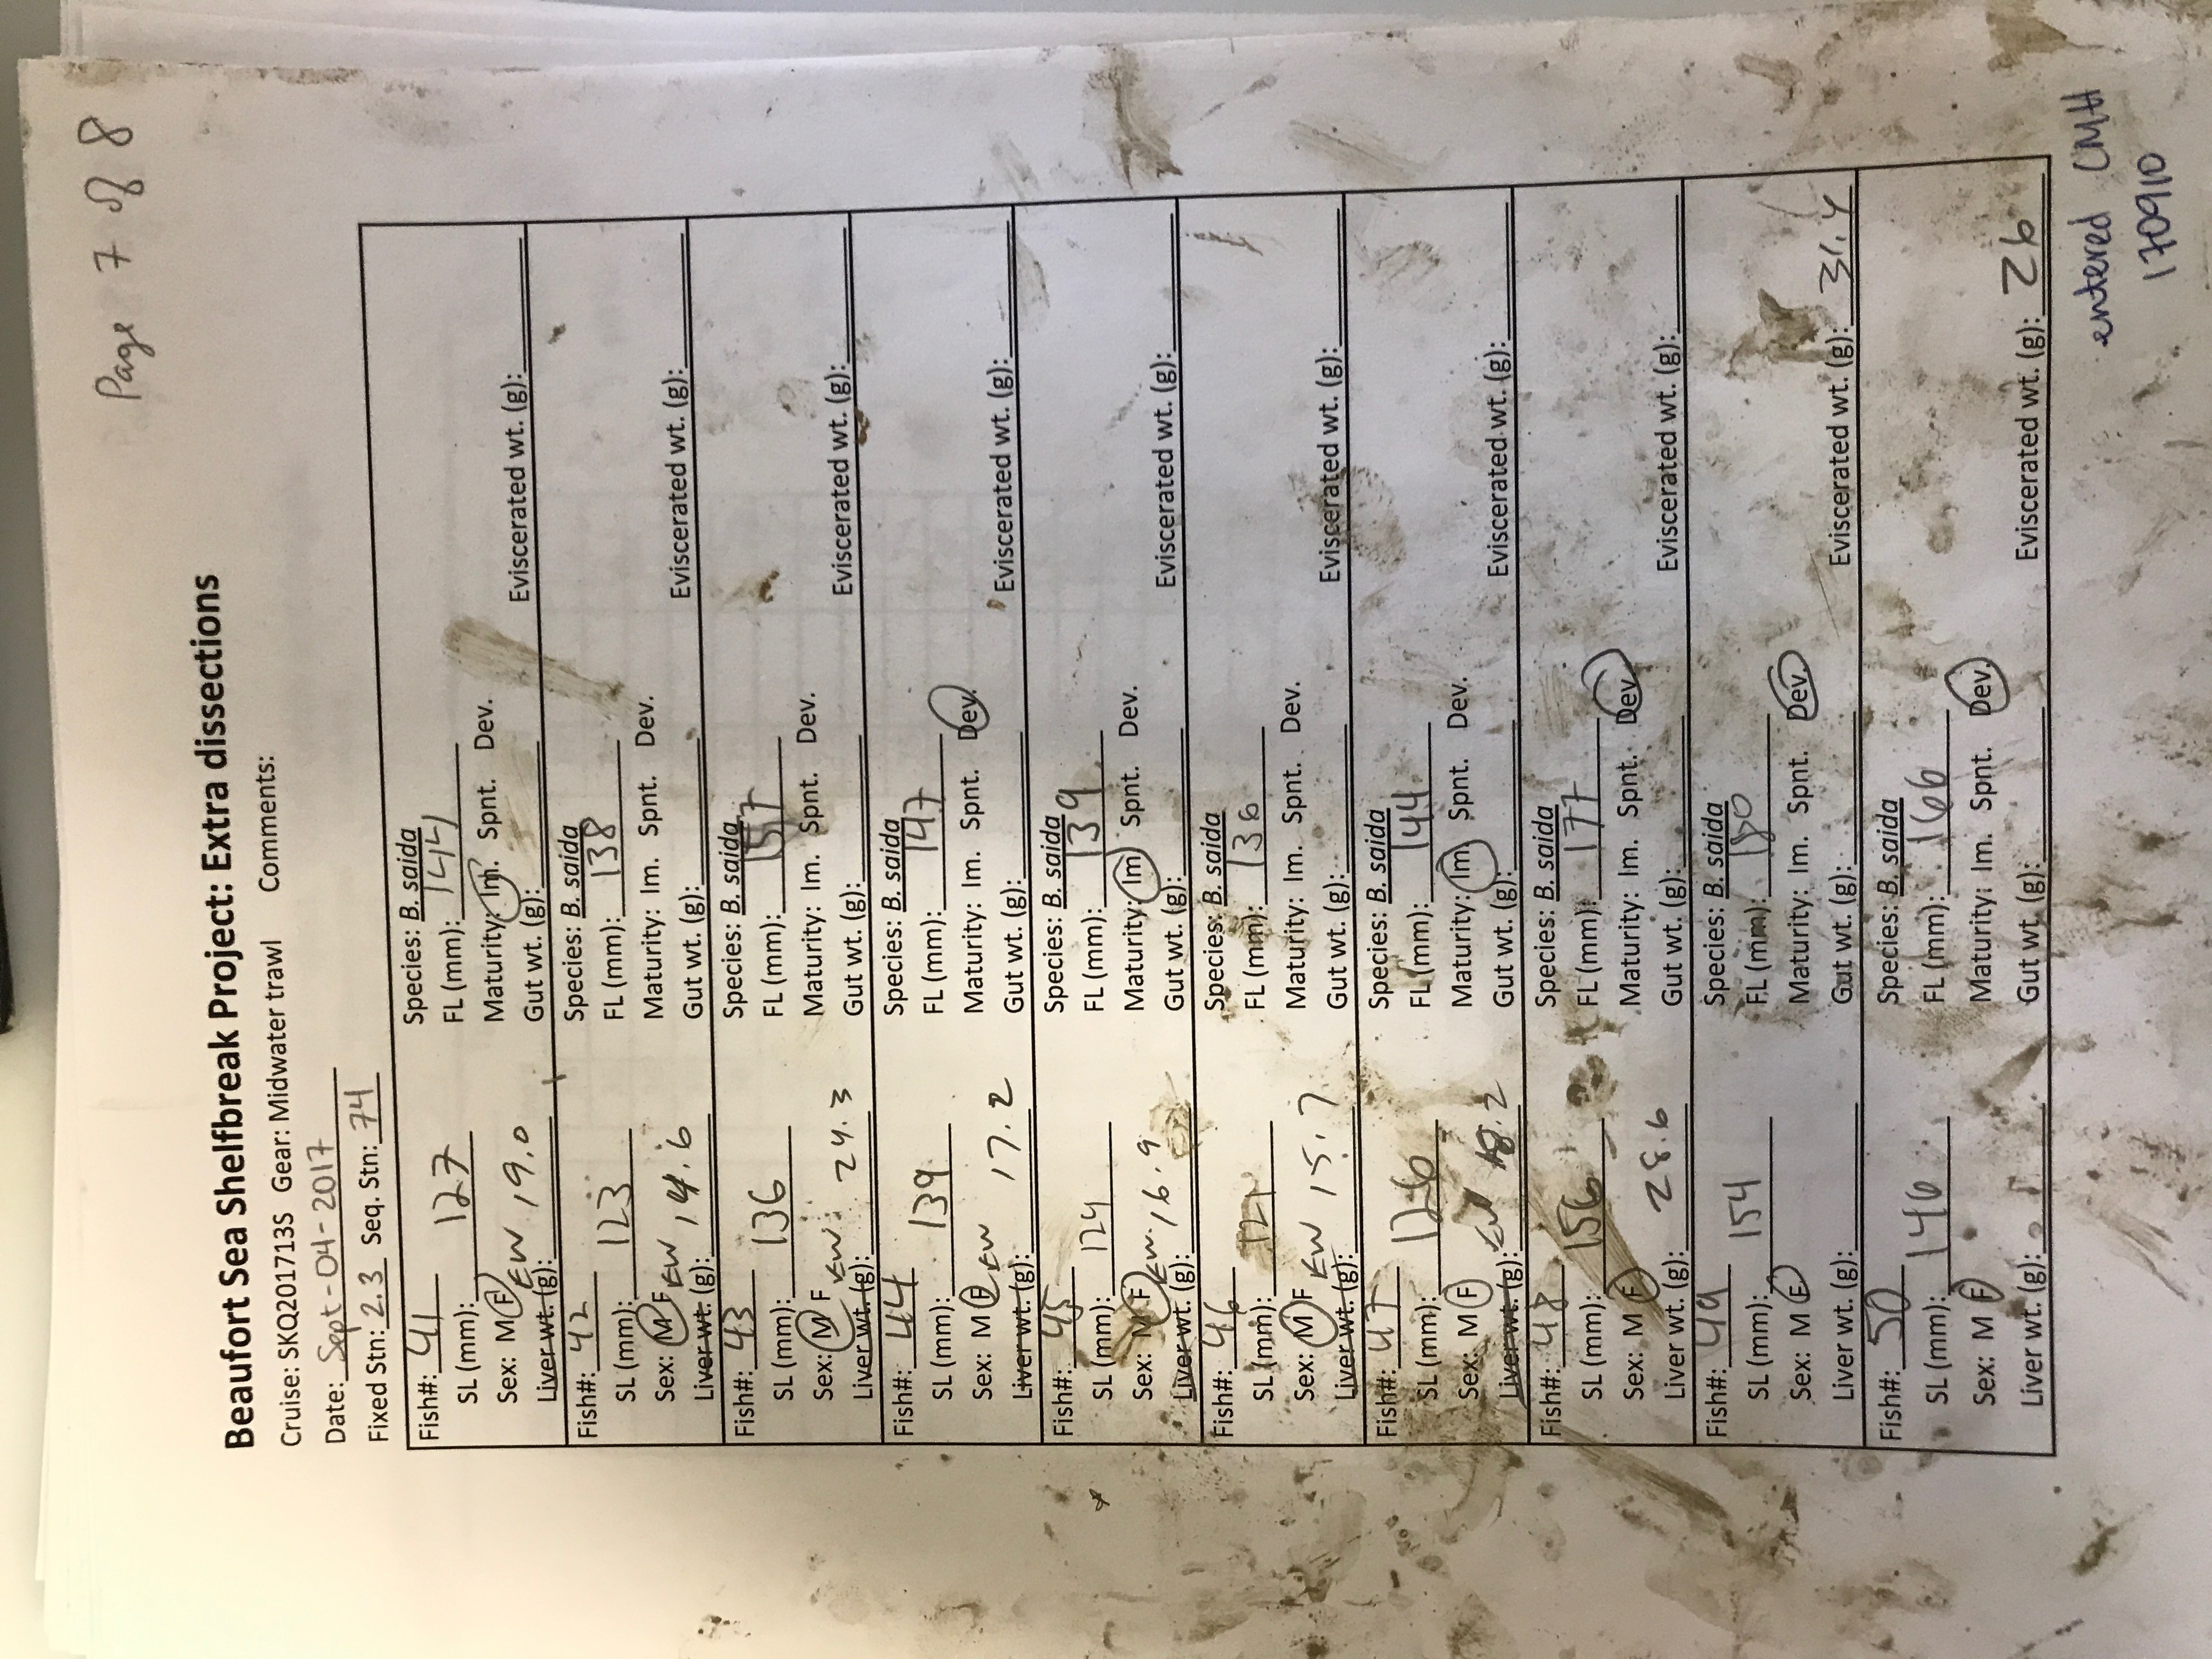 Page 7 of 8
Beaufort Sea Shelfbreak Project: Extra dissections
Cruise: SKQ201713S Gear: Midwater trawl Comments:
Date: Sept-04-2017
Fixed Stn: 2.3 Seq. Stn: 74
Fish#: 41 Species: B. saida
SL (mm): 127 FL (mm): 144
Sex: M F Maturity: Im. Spnt. Dev.
Liver wt. (g): EW 19.0 Gut wt. (g): Eviscerated wt. (g):
Fish#: 42 Species: B. saida
SL (mm): 123 FL (mm): 138
Sex: M F Maturity: Im. Spnt. Dev.
Liver wt. (g): EW 14.6 Gut wt. (g): Eviscerated wt. (g):
Fish#: 43 Species: B. saida
SL (mm): 136 FL (mm): 157
Sex: M F Maturity: Im. Spnt. Dev.
Liver wt. (g): EW: 24.3 Gut wt. (g): Eviscerated wt. (g):
Fish#: 44 Species: B. saida
SL (mm): 139 FL (mm): 147
Sex: M F Maturity: Im. Spnt. Dev.
Liver wt. (g): EW 17.2 Gut wt. (g): Eviscerated wt. (g):
Fish#: 45 Species: B. saida
SL (mm): 124 FL (mm): 139
Sex: M F Maturity: Im. Spnt. Dev.
Liver wt. (g): EW. 16.9 Gut wt. (g): Eviscerated wt. (g):
Fish#: 46 Species: B. saida
SL (mm): 121 FL (mm): 136
Sex: M F Maturity: Im. Spnt. Dev.
Liver wt. (g): EW 15.7 Gut wt. (g): Eviscerated wt. (g):
Fish#: 47 Species: B. saida
SL (mm): 126 FL (mm): 144
Sex: M F Maturity: Im. Spnt. Dev.
Liver wt. (g): EW 18.2 Gut wt. (g): Eviscerated wt. (g):
Fish#: 48 Species: B. saida
SL (mm): 156 FL (mm): 177
Sex: M F Maturity: Im. Spnt. Dev.
Liver wt. (g): 28.6 Gut wt. (g): Eviscerated wt. (g):
Fish#: 49 Species: B. saida
SL (mm): 154 FL (mm): 180
Sex: M F Maturity: Im. Spnt. Dev.
Liver wt. (g): Gut wt. (g): Eviscerated wt. (g): 31.4
Fish#: 50 Species: B. saida
SL (mm): 146 FL (mm): 166
Sex: M F Maturity: Im. Spnt. Dev.
Liver wt. (g): Gut wt. (g): Eviscerated wt. (g): 26
entered CMH
170910